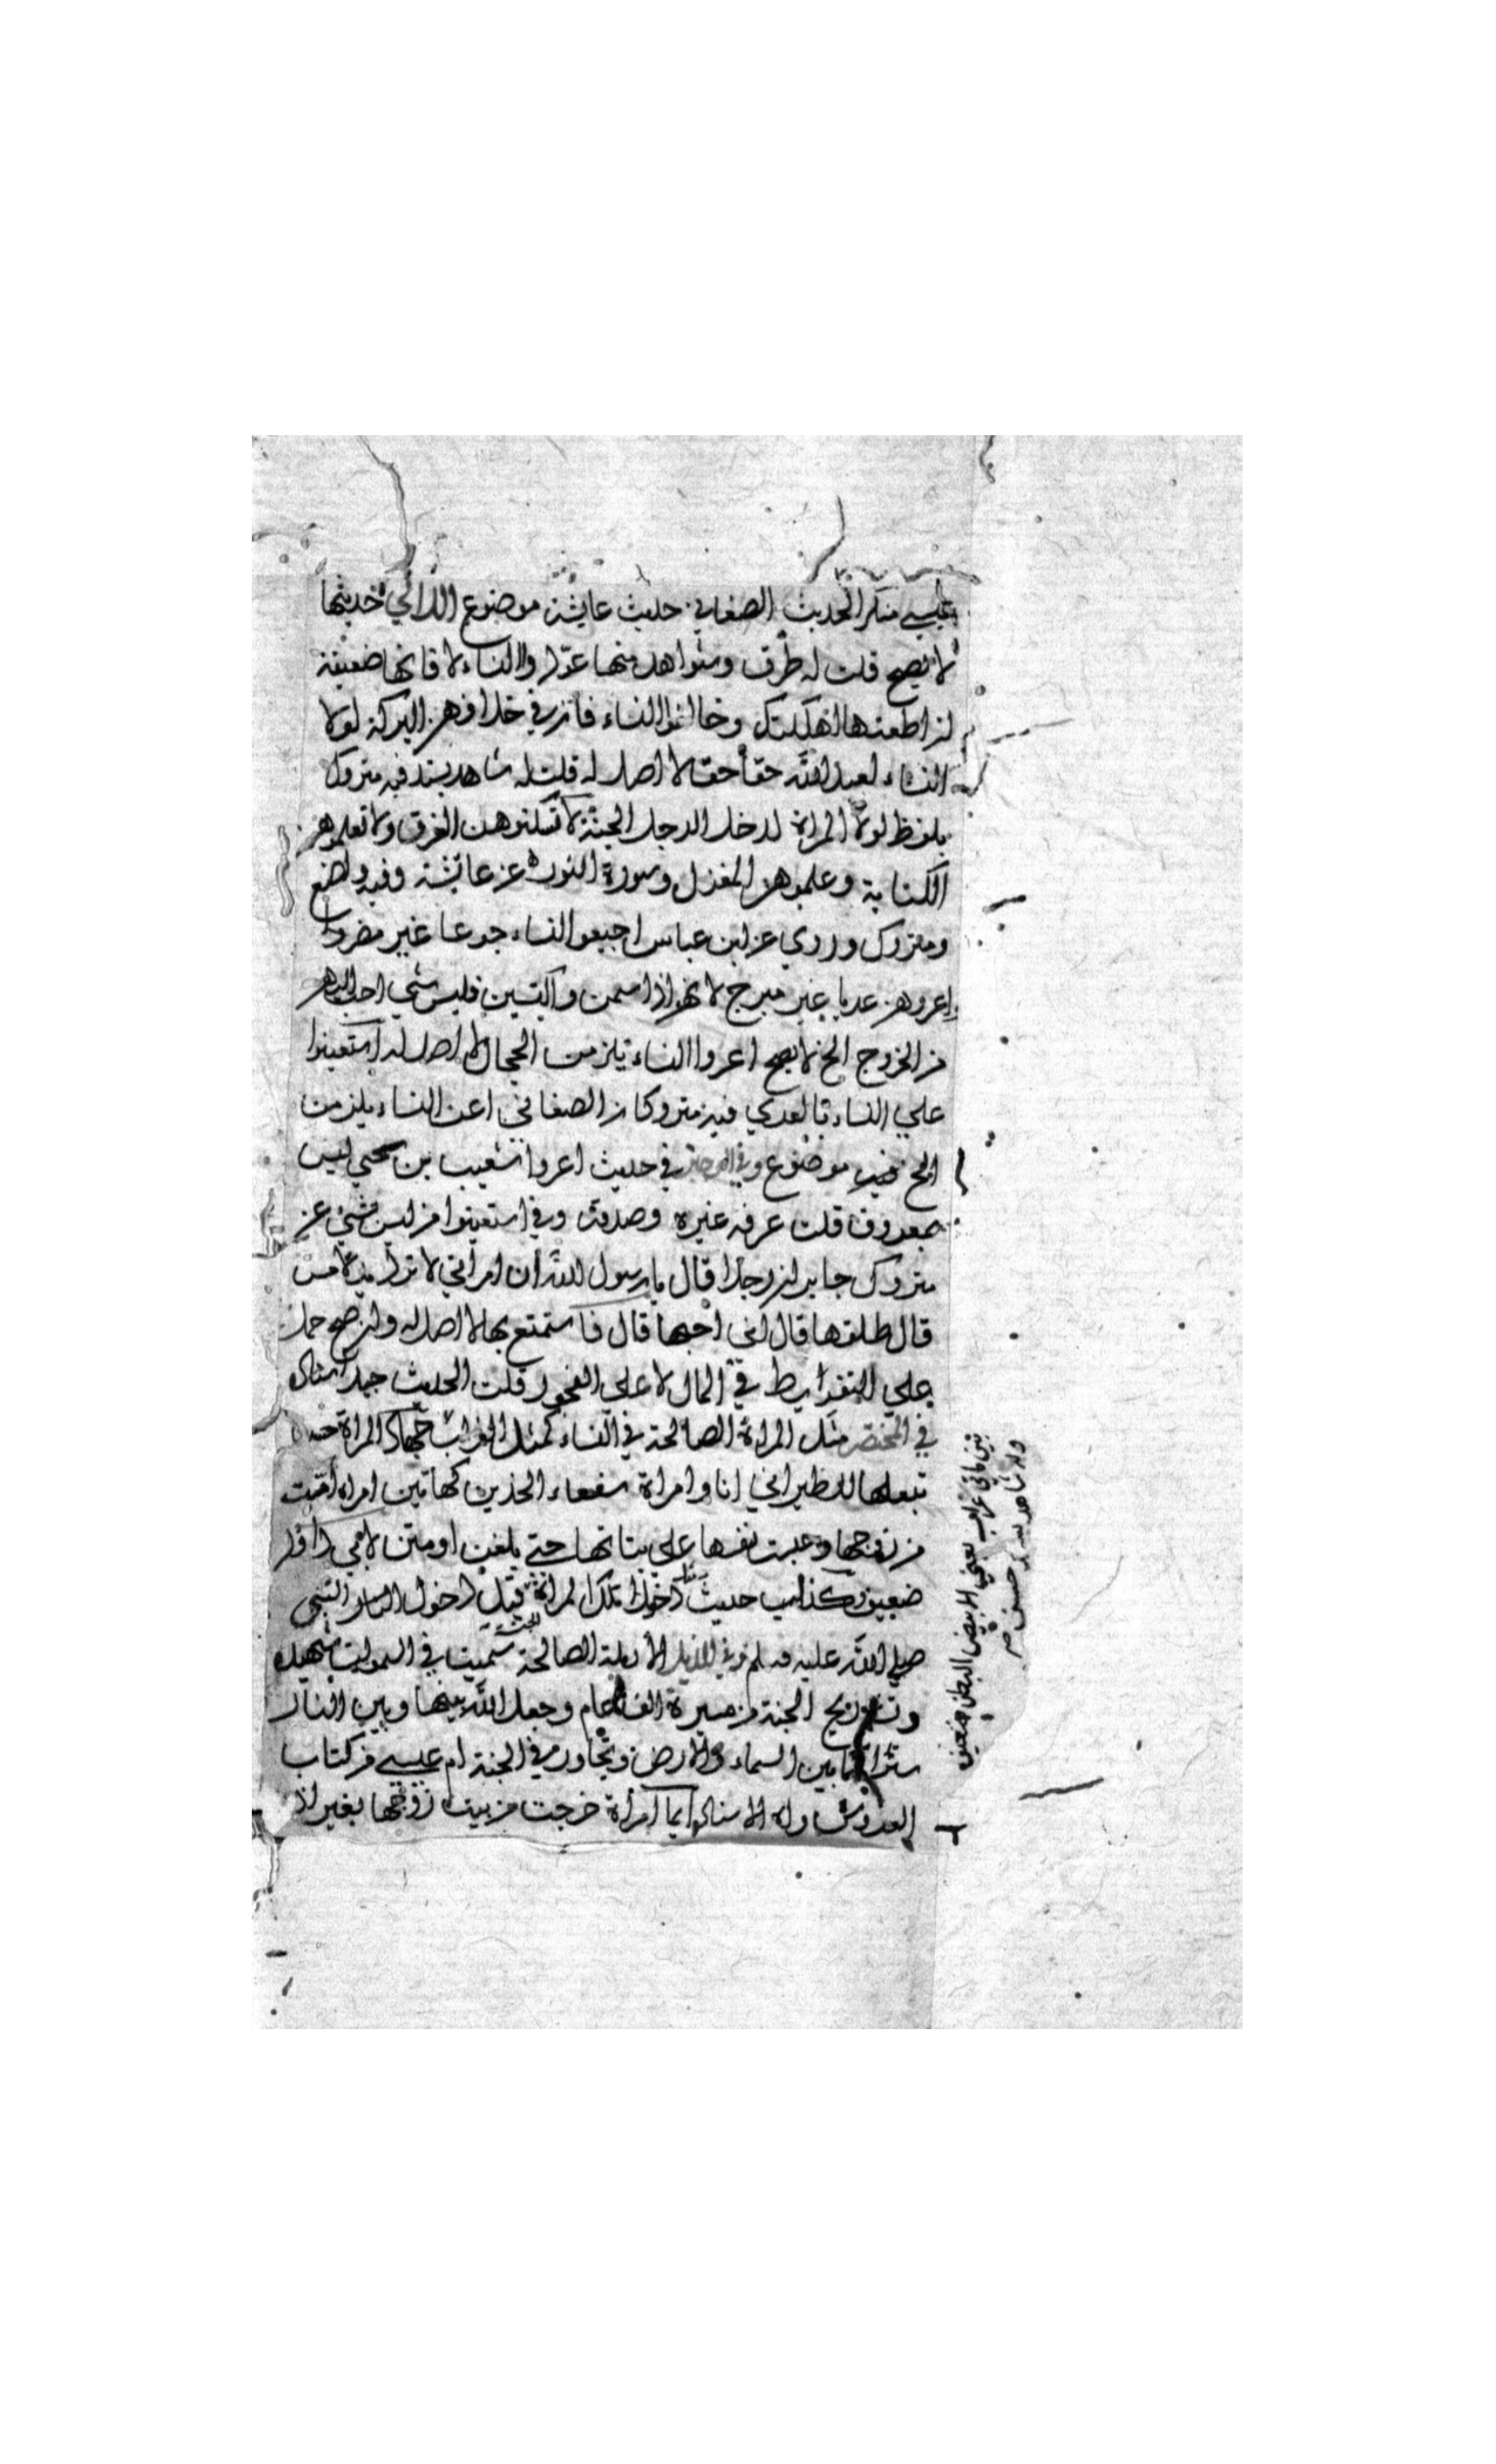 عيسى منكر الحديث الصغاني حديث عايشة موضوع اللرائي خديثها
لا يصح قلت له طرق وشواهد منها عودوا النساء لا فانها ضعيفة
ان اطعتها اهلكتك وخالفوا النساء فان في خلافهن البركة لولا
النساء لعبد الله حقا حقا لا اصل له قلت له شاهد بسند فيه متروك
بلفظ لولا المراة لدخل الرجل الجنة لا تسكنوهن الغرف ولا تعلموهن
الكتابة وعلموهن المغزل وسورة النور عن عائشة وفيه واضع
ومتروك وروي عن ابن عباس اجيعوا النساء جوعا غير مضر و
اعروهن عريا غير مبرح لانهن اذا سمن واكتسين فليس شي احب اليهن
من الخروج الخ لا يصح اعروا النساء يلزمن الحجال لا اصل له استعينوا
علي النساء بالعري فيه متروكان الصغاني اعروا النساء يلزمن
الخ موضوع وفي الوجيز في حديث اعروا شعيب بن يحيي ليس
بمعروف قلت عرفه غيره وصدقه وفي استعينوا من ليس بشئ عن
متروك جابر ان رجلا قال يا رسول الله ان امراتي لا ترد يد لامس
قال طلقها قال اني احبها قال فاستمتع بها لا اصل له ولئن صح حمل
علي التفريط في المال لا على الفجور قلت الحديث جيد اسناد
في المختصر مثل المراة الصالحة في النساء كمثل الغراب جهاد المراة حسن
تبعلها للطبراني انا وامراة سفعاء الخدين كهاتين امراة أيمت
من زوجها وحبست نفسها على بناتها حتى يبلغن او متن لابي داود
ضعيف كذا حديث دخول تلك المراة قبل دخول النبي
صلي الله عليه وسلم وفي الذيل الأرملة الصالحة سميت في السموات شهيدة
وتشم ريح الجنة من مسيرة الف عام وجعل الله بينها وبين النار
سترا ما بين السماء والارض وتجاور في الجنة ام عيسى من كتاب
العروس واه الاسناد ايما امرأة خرجت من بيت زوجها بغير اذ
يعني الابيض البطن ضعيف
وله شاهد بسند حسن